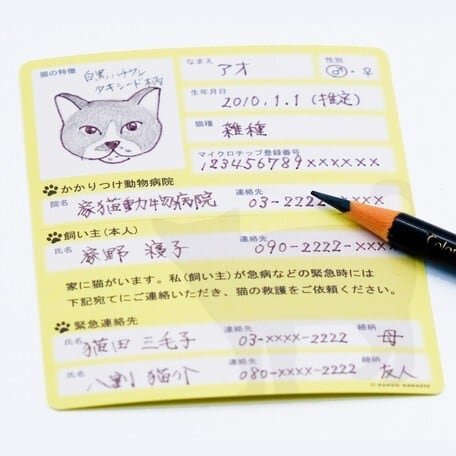 猫の特徴
白黒ハチワレ
タキシード柄
なまえ アオ
性別 ♂・♀
生年月日
2010.1.1(推定)
猫種
雑種
マイクロチップ登録番号
123456789××××××
かかりつけ動物病院
院名 家猫動物病院 連絡先 03-2222-××××
飼い主(本人)
氏名 家野 寝子 連絡先 090-2222-××××
家に猫がいます。私(飼い主)が急病などの緊急時には
下記宛てにご連絡いただき、猫の救護をご依頼ください。
緊急連絡先
氏名 猫田 三毛子 連絡先 03-××××-2222 続柄 母
氏名 八割 猫介 連絡先 080-××××-2222 続柄 友人
Color